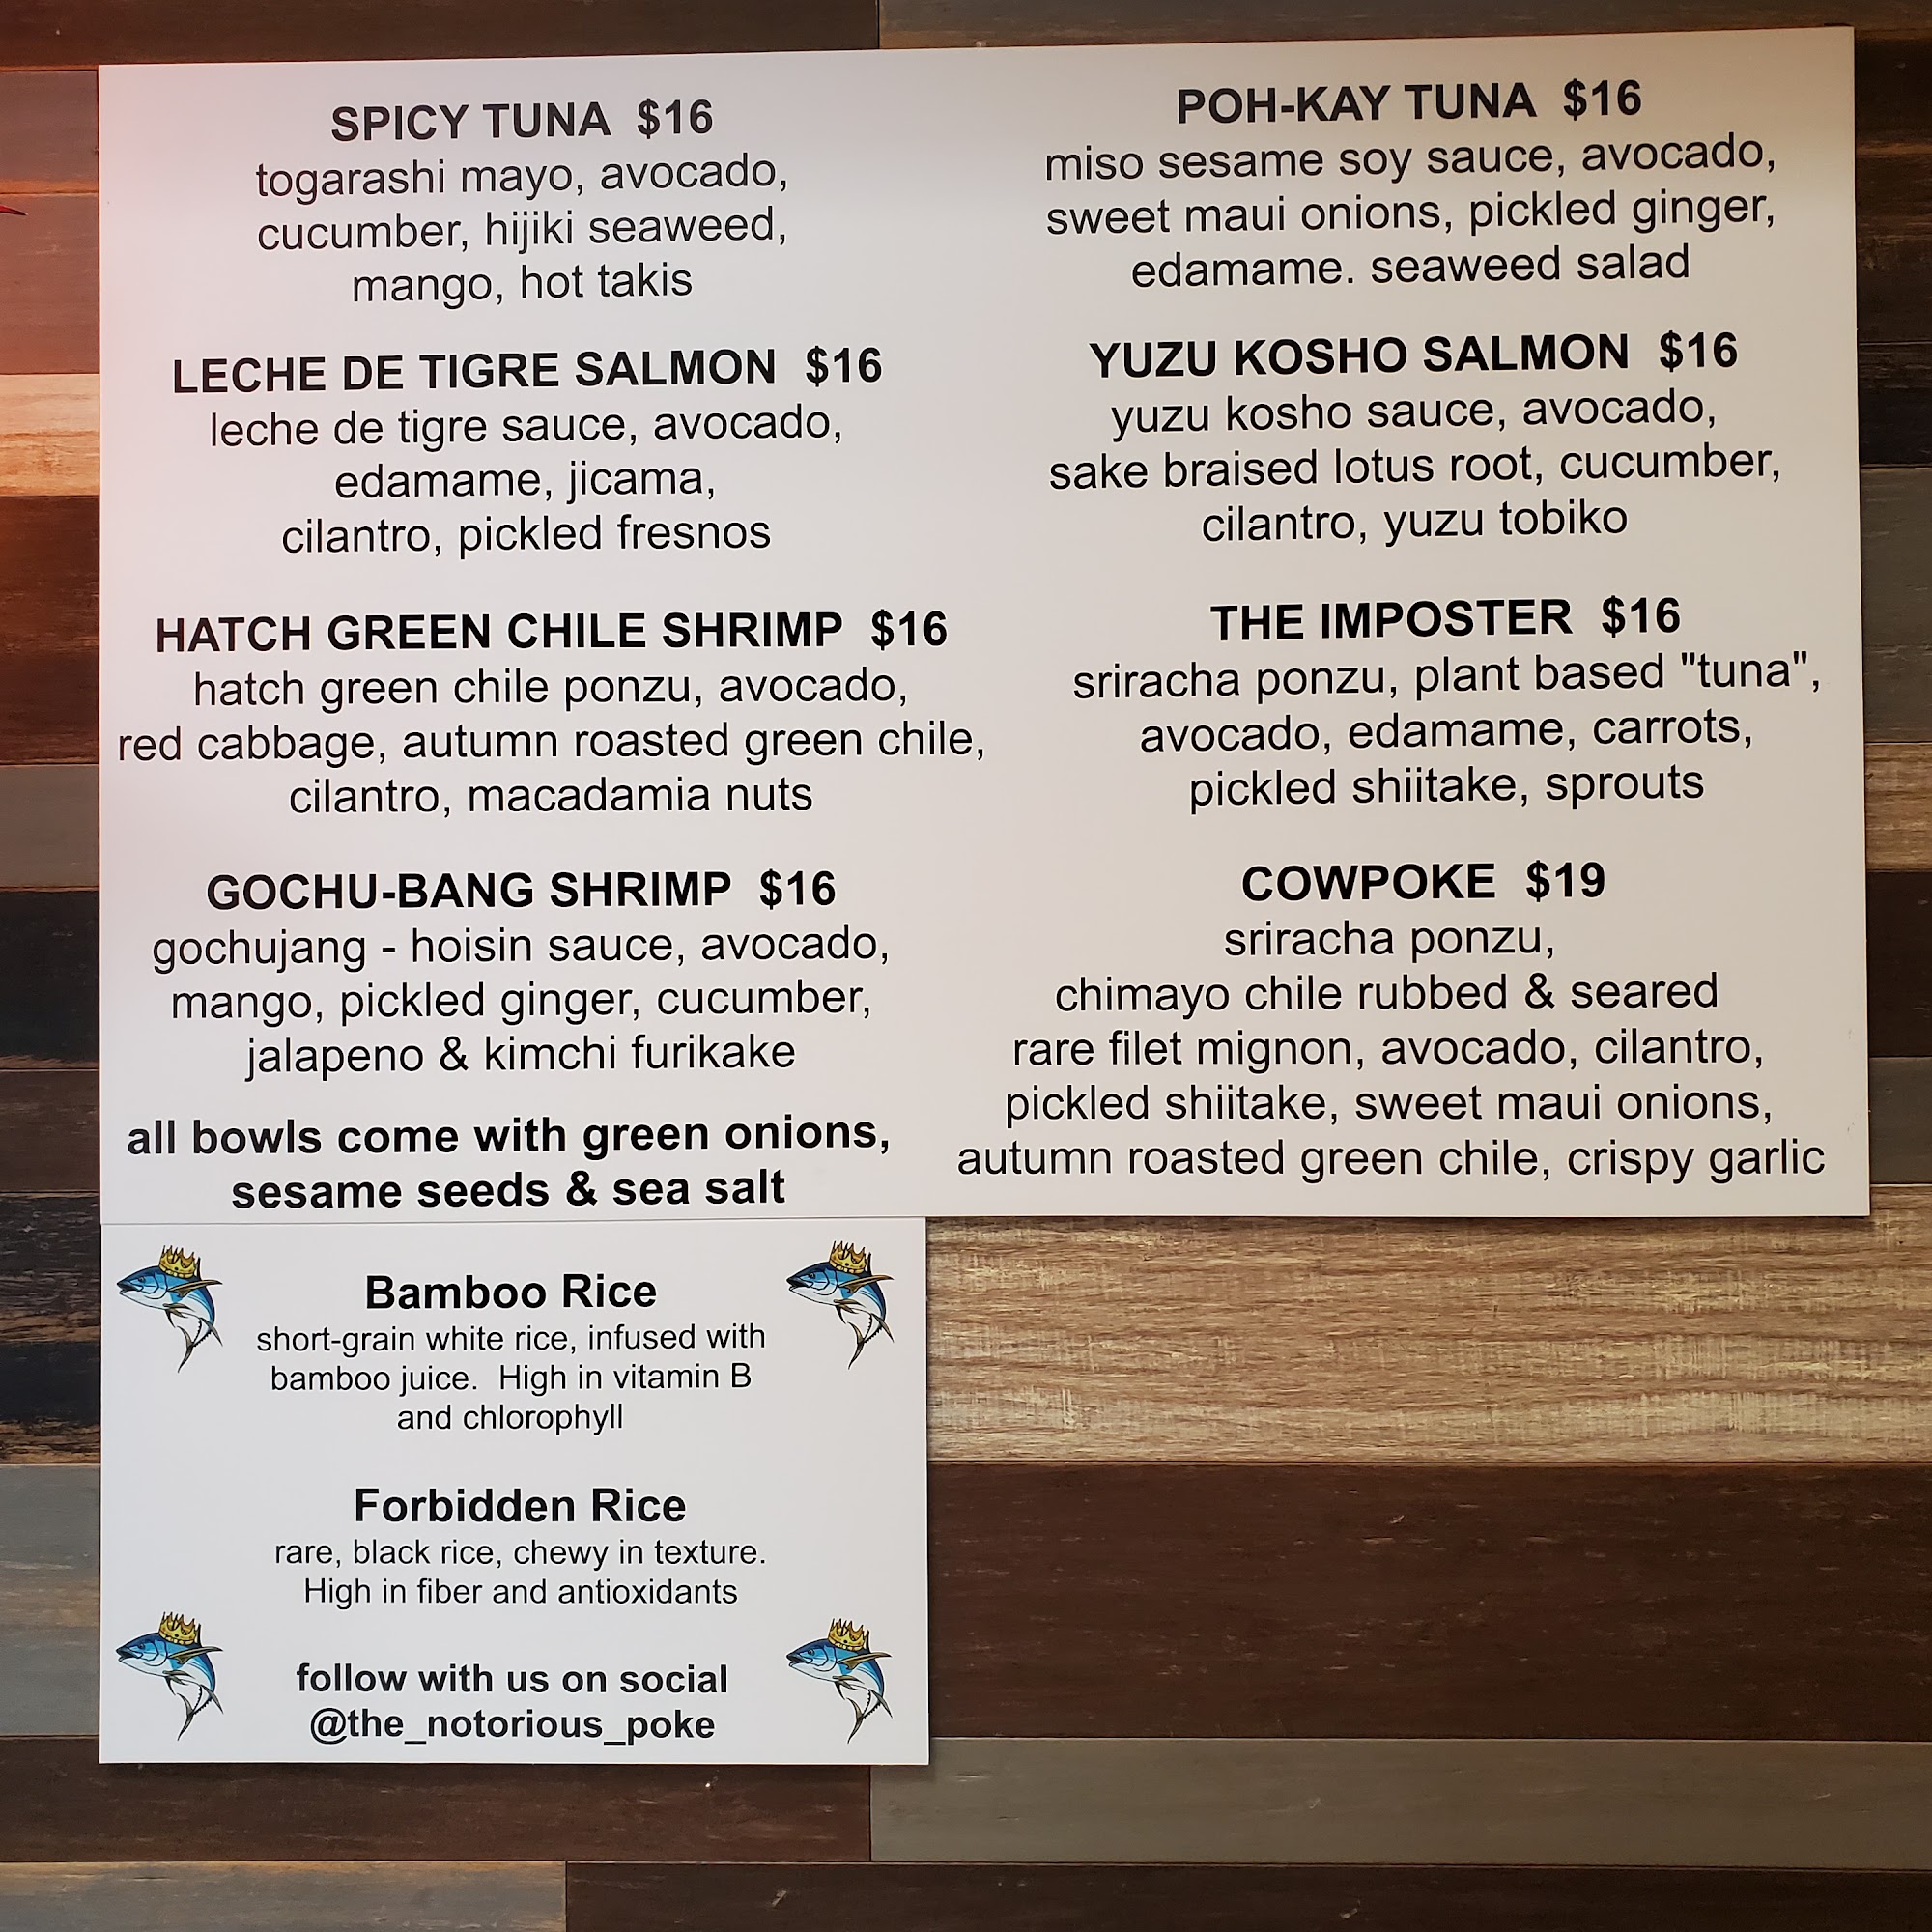 SPICY TUNA $16
togarashi mayo, avocado,
cucumber, hijiki seaweed,
mango, hot takis
LECHE DE TIGRE SALMON $16
leche de tigre sauce, avocado,
edamame, jicama,
cilantro, pickled fresnos
HATCH GREEN CHILE SHRIMP $16
hatch green chile ponzu, avocado,
red cabbage, autumn roasted green chile,
cilantro, macadamia nuts
GOCHU-BANG SHRIMP $16
gochujang - hoisin sauce, avocado,
mango, pickled ginger, cucumber,
jalapeno & kimchi furikake
all bowls come with green onions,
sesame seeds & sea salt
POH-KAY TUNA $16
miso sesame soy sauce, avocado,
sweet maui onions, pickled ginger,
edamame. seaweed salad
YUZU KOSHO SALMON $16
yuzu kosho sauce, avocado,
sake braised lotus root, cucumber,
cilantro, yuzu tobiko
THE IMPOSTER $16
sriracha ponzu, plant based "tuna",
avocado, edamame, carrots,
pickled shiitake, sprouts
COWPOKE $19
sriracha ponzu,
chimayo chile rubbed & seared
rare filet mignon, avocado, cilantro,
pickled shiitake, sweet maui onions,
autumn roasted green chile, crispy garlic
Bamboo Rice
short-grain white rice, infused with
bamboo juice. High in vitamin B
and chlorophyll
Forbidden Rice
rare, black rice, chewy in texture.
High in fiber and antioxidants
follow with us on social
@the_notorious_poke